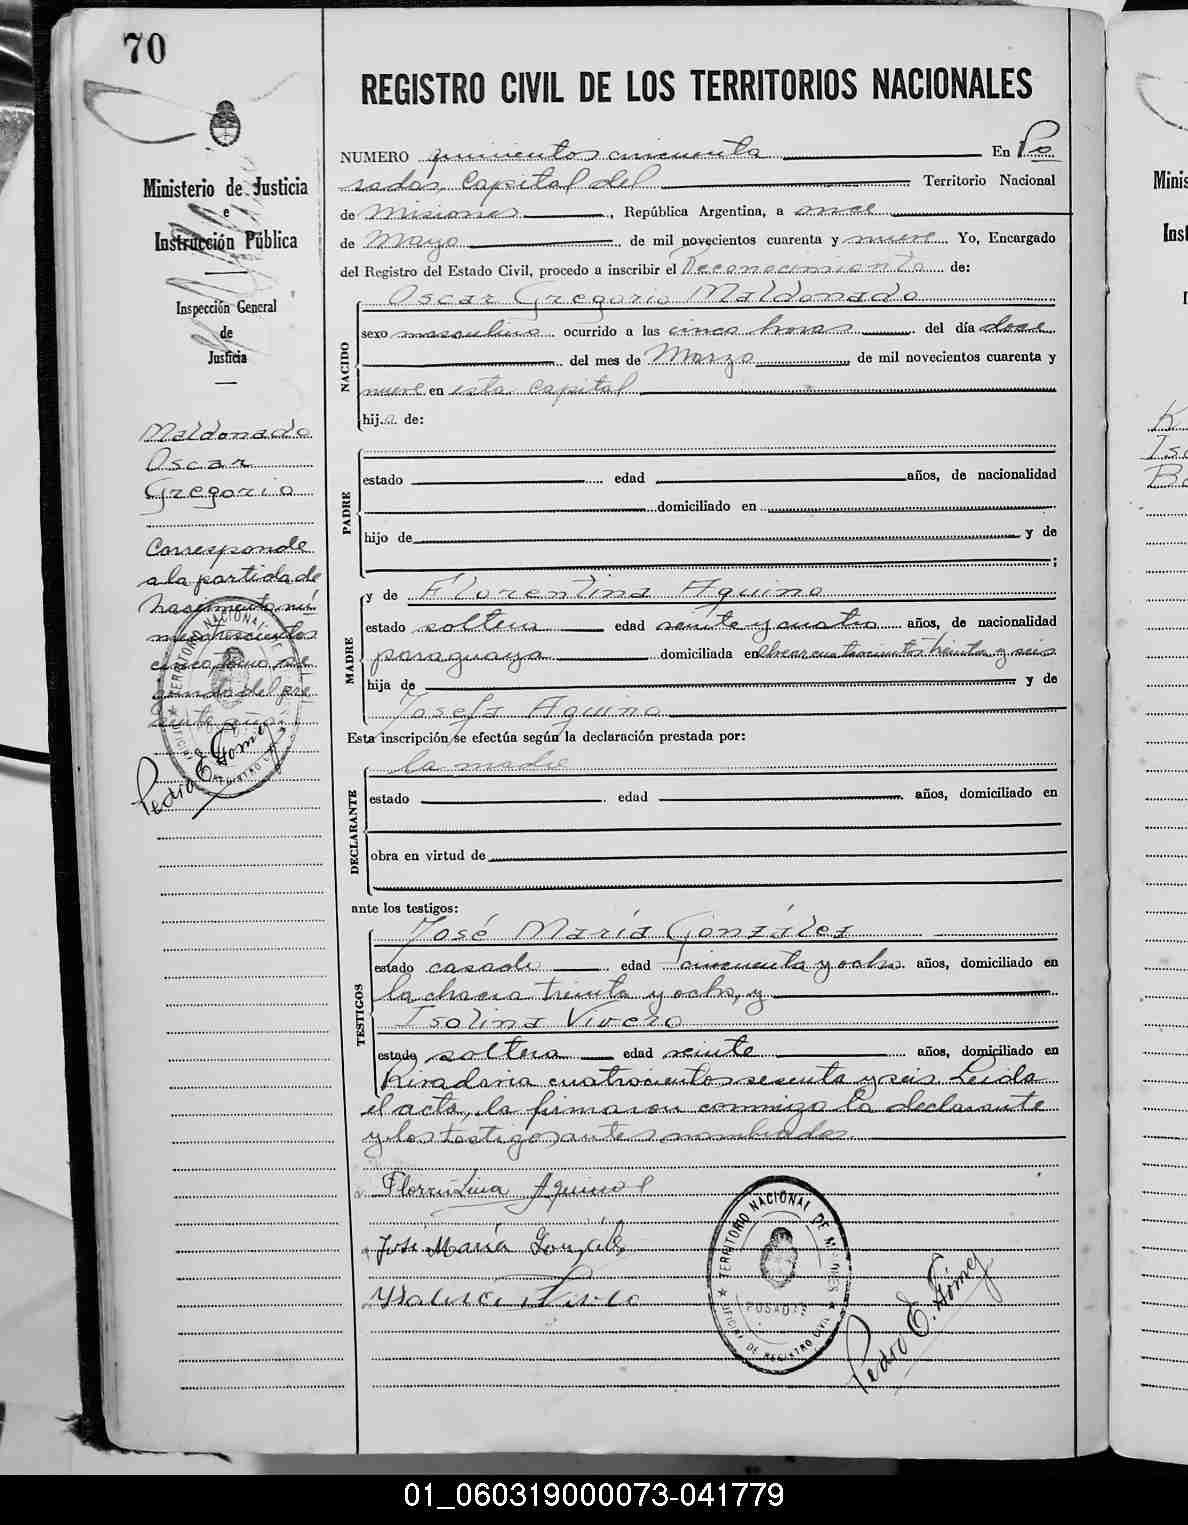 70
REGISTRO CIVIL DE LOS TERRITORIOS NACIONALES
Ministerio de Justicia
e
Instrucción Pública
Inspección General
de
Justicia
Maldonado
Oscar
Gregorio
Corresponde
a la partida de
nacimiento nú
mero trescientos
cinco, tomo se
gundo del pre
sente año.
Pedro E. Gómez
NUMERO quinientos cincuenta En Po
sadas, Capital del Territorio Nacional
de Misiones, República Argentina, a once
de Mayo de mil novecientos cuarenta y nueve Yo, Encargado
del Registro del Estado Civil, procedo a inscribir el Reconocimiento de:
NACIDO
Oscar Gregorio Maldonado
sexo masculino ocurrido a las cinco horas del día doce
del mes de Marzo de mil novecientos cuarenta y
nueve en esta capital
hij.o de:
PADRE
estado edad años, de nacionalidad
domiciliado en
hijo de y de
;
MADRE
y de Florentina Aquino
estado soltera edad veinte y cuatro años, de nacionalidad
paraguaya domiciliada en Alvear cuatrocientos treinta y seis
hija de y de
Josefa Aquino
Esta inscripción se efectúa según la declaración prestada por:
DECLARANTE
la madre
estado edad años, domiciliado en
obra en virtud de
ante los testigos:
TESTIGOS
José María González
estado casado edad cincuenta y ocho años, domiciliado en
la chacra treinta y ocho, y
Isolina Vivero
estado soltera edad veinte años, domiciliado en
Rivadavia cuatrocientos sesenta y seis Leida
el acta, la firmaron conmigo la declarante
y los testigos antes nombrados.
Florentina Aquino
José María González
Isolina Vivero
TERRITORIO NACIONAL DE MISIONES
POSADAS
OFICINA DE REGISTRO CIVIL
Pedro E. Gómez
Minis
Inst
01_060319000073-041779